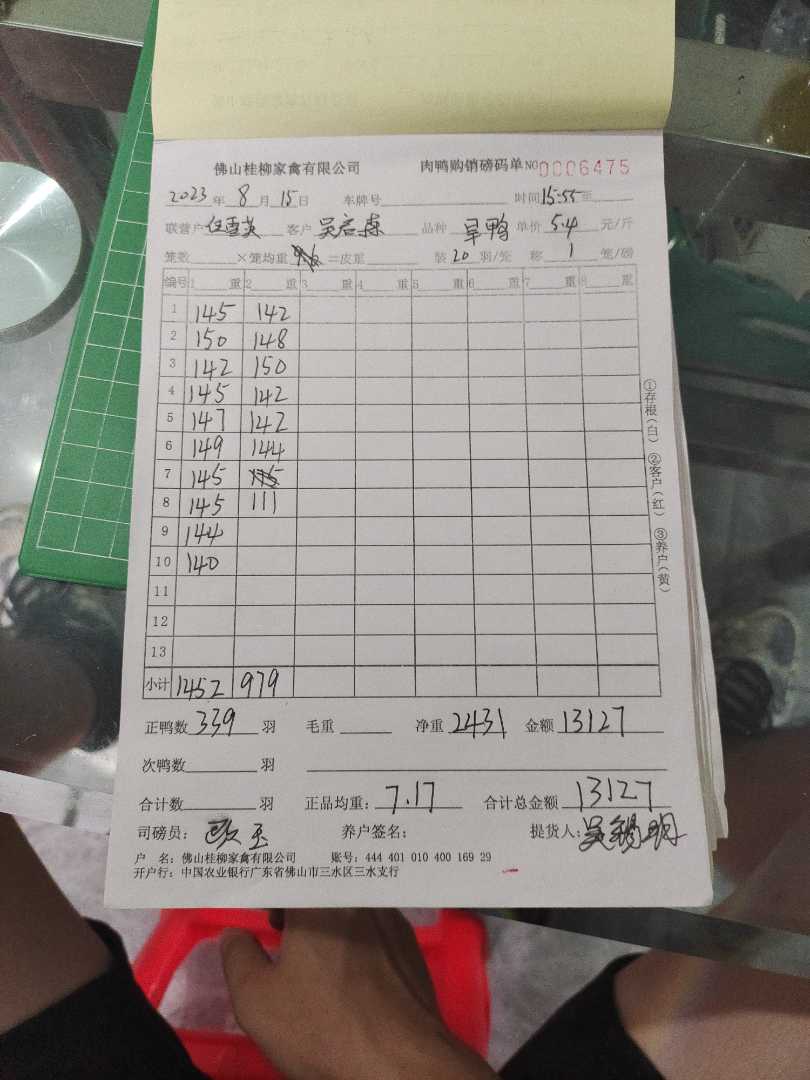 佛山桂柳家禽有限公司 肉鸭购销磅码单 NO 0006475
2023 年 8 月 15 日 车牌号 时间 15:55 至
联营户 任雪英 客户 吴启森 品种 旱鸭 单价 5.4 元/斤
笼数 ×笼均重 =皮重 装 20 羽/笼 称 1 笼/磅
编号 1 重 2 重 3 重 4 重 5 重 6 重 7 重 8 重
1 145 142
2 150 148
3 142 150
4 145 142
5 147 142
6 149 144
7 145
8 145 111
9 144
10 140
11
12
13
小计 1452 979
正鸭数 339 羽 毛重 净重 2431 金额 13127
次鸭数 羽
合计数 羽 正品均重: 7.17 合计总金额 13127
司磅员: 养户签名: 提货人: 吴锡明
户 名: 佛山桂柳家禽有限公司 账号: 444 401 010 400 169 29
开户行: 中国农业银行广东省佛山市三水区三水支行
①存根(白) ②客户(红) ③养户(黄)